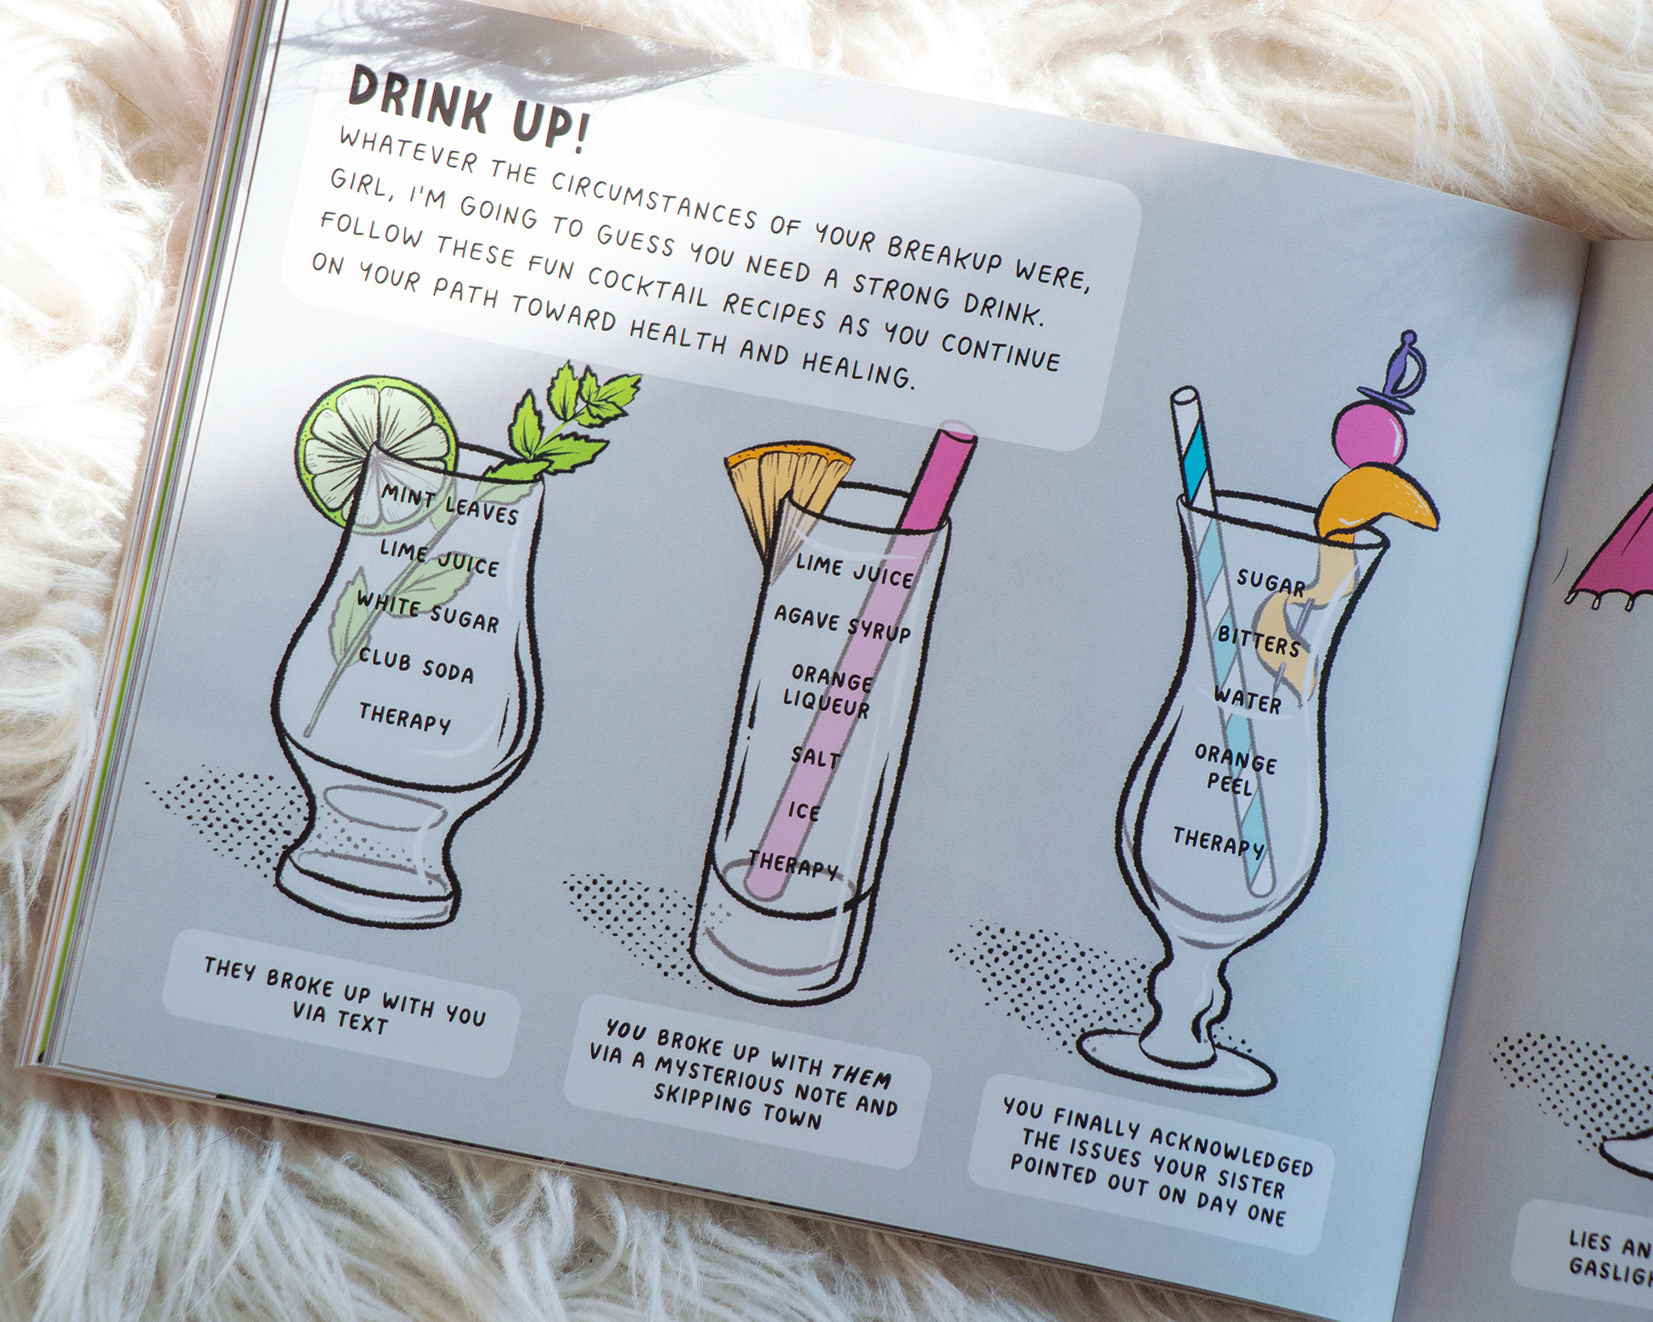 DRINK UP!
WHATEVER THE CIRCUMSTANCES OF YOUR BREAKUP WERE,
GIRL, I'M GOING TO GUESS YOU NEED A STRONG DRINK.
FOLLOW THESE FUN COCKTAIL RECIPES AS YOU CONTINUE
ON YOUR PATH TOWARD HEALTH AND HEALING.
MINT LEAVES
LIME JUICE
WHITE SUGAR
CLUB SODA
THERAPY
THEY BROKE UP WITH YOU
VIA TEXT
LIME JUICE
AGAVE SYRUP
ORANGE
LIQUEUR
SALT
ICE
THERAPY
YOU BROKE UP WITH THEM
VIA A MYSTERIOUS NOTE AND
SKIPPING TOWN
SUGAR
BITTERS
WATER
ORANGE
PEEL
THERAPY
YOU FINALLY ACKNOWLEDGED
THE ISSUES YOUR SISTER
POINTED OUT ON DAY ONE
LIES